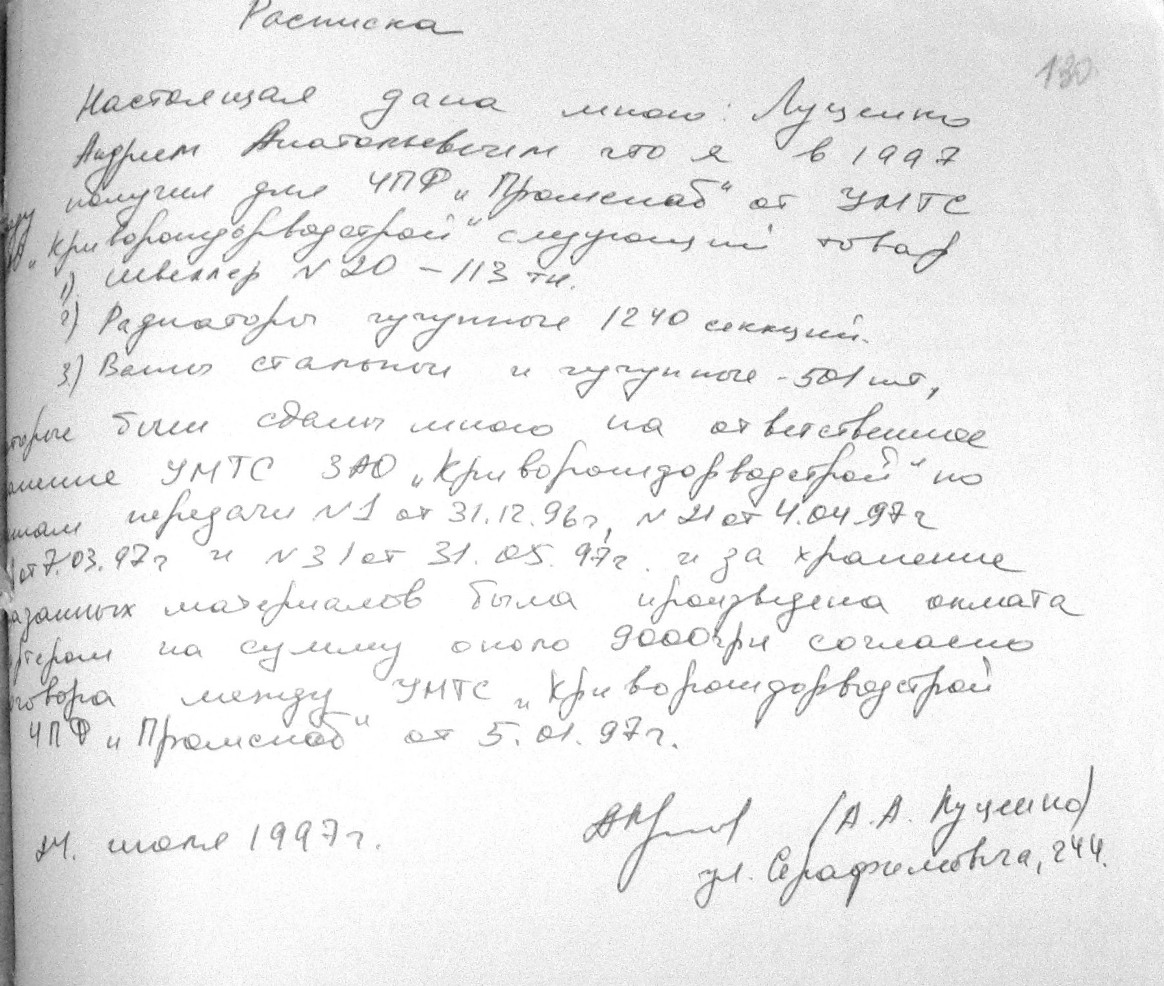 Расписка
130
Настоящая дана мною: Луценко
Андрием Анатольевичем что я в 1997
получил для ЧПФ „Промснаб" от УМТС
„Криворождорводстрой" следующий товар
1) швеллер N 20 – 113 тн.
2) Радиаторы чугунные 1240 секций.
3) Ванны стальные и чугунные - 501 шт,
торые были сданы мною на ответственное
анение УМТС ЗАО „Криворождорводстрой" по
передачи N1 от 31.12.96г, N 21 от 4.04.97г
от 7.03.97г и N31 от 31.05.97г. и за хранение
азанных материалов была произведена оплата
ртером на сумму около 9000грн согласно
оговора между УМТС „Криворождорводстрой
ЧПФ „Промснаб" от 5.01.97г.
24. июля 1997г.
(А.А. Луценко)
ул. Серафимовича, 244.